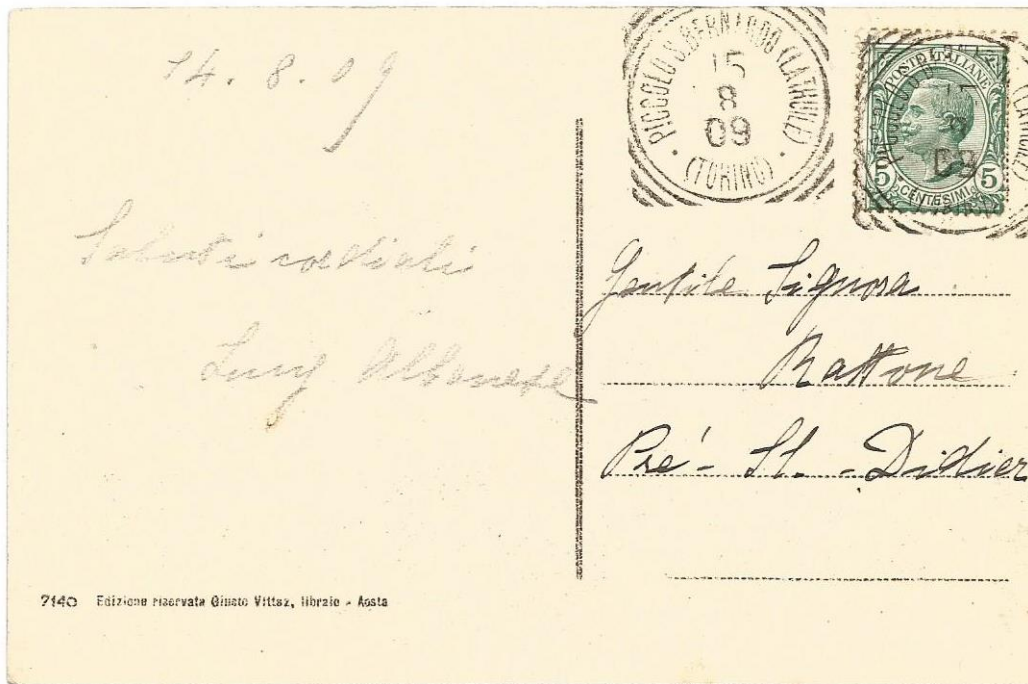 14. 8. 09
Saluti cordiali
Albanese
PICCOLO S. BERNARDO (LATHUILE)
15
8
09
(TORINO)
POSTE ITALIANE
5 CENTESIMI 5
Gentile Signora
Rattone
Pré - St. - Didier
7140 Edizione riservata Giusto Vittaz, libraio - Aosta